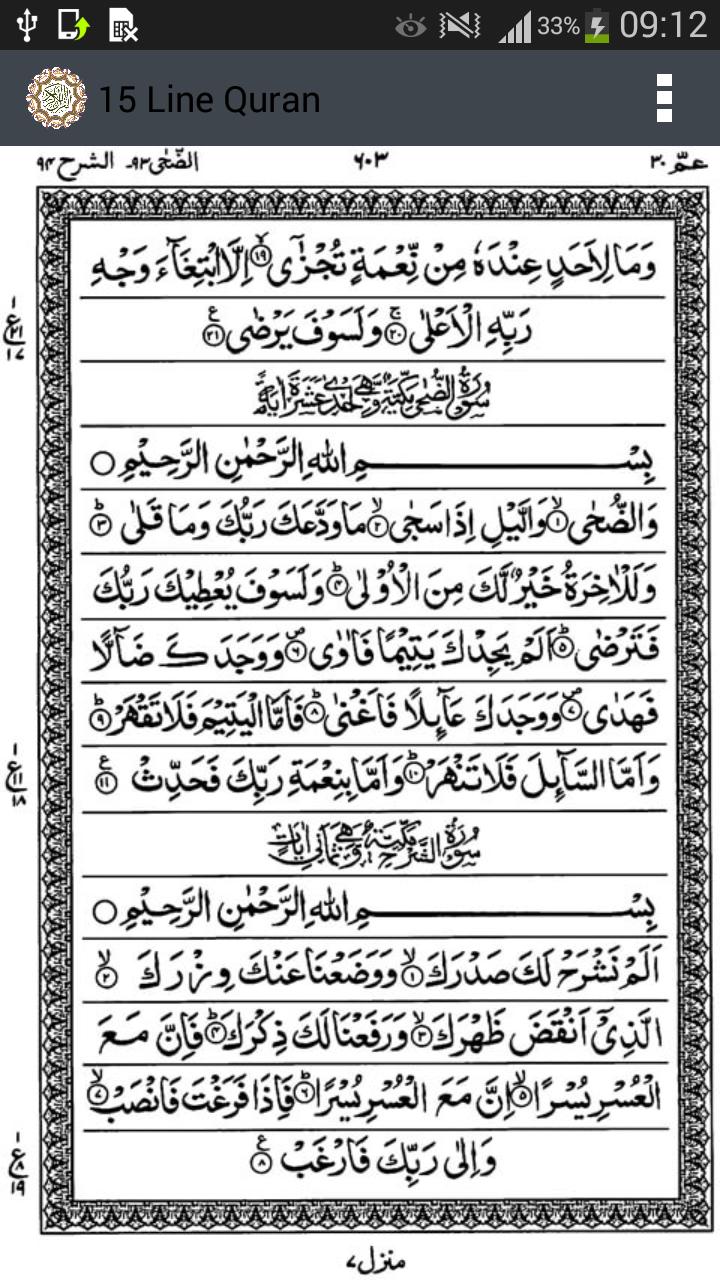 33% 09:12
15 Line Quran
عمّ ٣٠ ٦٠٣ الضّحٰى ٩٣ الشرح ٩٤
وَمَا لِاَحَدٍ عِنْدَهٗ مِنْ نِّعْمَةٍ تُجْزٰٓى ۙ‏﴿۱۹﴾ اِلَّا ابْتِغَآءَ وَجْهِ
رَبِّهِ الْاَعْلٰى ۚ‏﴿۲۰﴾ وَلَسَوْفَ يَرْضٰى ﴿۲۱﴾ ع
ع ٢١ ١٧
سُوْرَةُ الضُّحٰى مَكِّيَّةٌ وَّهِىَ اِحْدٰى عَشْرَةَ اٰيَةً
بِسْمِ اللّٰهِ الرَّحْمٰنِ الرَّحِيْمِ ○
وَالضُّحٰى ۙ‏﴿۱﴾ وَالَّيْلِ اِذَا سَجٰى ۙ‏﴿۲﴾ مَا وَدَّعَكَ رَبُّكَ وَمَا قَلٰى ؕ‏﴿۳﴾
وَلَلْاٰخِرَةُ خَيْرٌ لَّكَ مِنَ الْاُوْلٰى ؕ‏﴿۴﴾ وَلَسَوْفَ يُعْطِيْكَ رَبُّكَ
فَتَرْضٰى ؕ‏﴿۵﴾ اَلَمْ يَجِدْكَ يَتِيْمًا فَاٰوٰى ۖ‏﴿۶﴾ وَوَجَدَكَ ضَآلًّا
فَهَدٰى ۖ‏﴿۷﴾ وَوَجَدَكَ عَآئِلًا فَاَغْنٰى ؕ‏﴿۸﴾ فَاَمَّا الْيَتِيْمَ فَلَا تَقْهَرْ ؕ‏﴿۹﴾
وَاَمَّا السَّآئِلَ فَلَا تَنْهَرْ ؕ‏﴿۱۰﴾ وَاَمَّا بِنِعْمَةِ رَبِّكَ فَحَدِّثْ ﴿۱۱﴾ ع
ع ١١ ١٨
سُوْرَةُ الشَّرْحِ مَكِّيَّةٌ وَّهِىَ ثَمَانِىْ اٰيَاتٍ
بِسْمِ اللّٰهِ الرَّحْمٰنِ الرَّحِيْمِ ○
اَلَمْ نَشْرَحْ لَكَ صَدْرَكَ ۙ‏﴿۱﴾ وَوَضَعْنَا عَنْكَ وِزْرَكَ ۙ‏﴿۲﴾
الَّذِىْٓ اَنْقَضَ ظَهْرَكَ ۙ‏﴿۳﴾ وَرَفَعْنَا لَكَ ذِكْرَكَ ؕ‏﴿۴﴾ فَاِنَّ مَعَ
الْعُسْرِ يُسْرًا ۙ‏﴿۵﴾ اِنَّ مَعَ الْعُسْرِ يُسْرًا ؕ‏﴿۶﴾ فَاِذَا فَرَغْتَ فَانْصَبْ ۙ‏﴿۷﴾
وَاِلٰى رَبِّكَ فَارْغَبْ ﴿۸﴾ ع
ع ٨ ١٩
منزل ٧